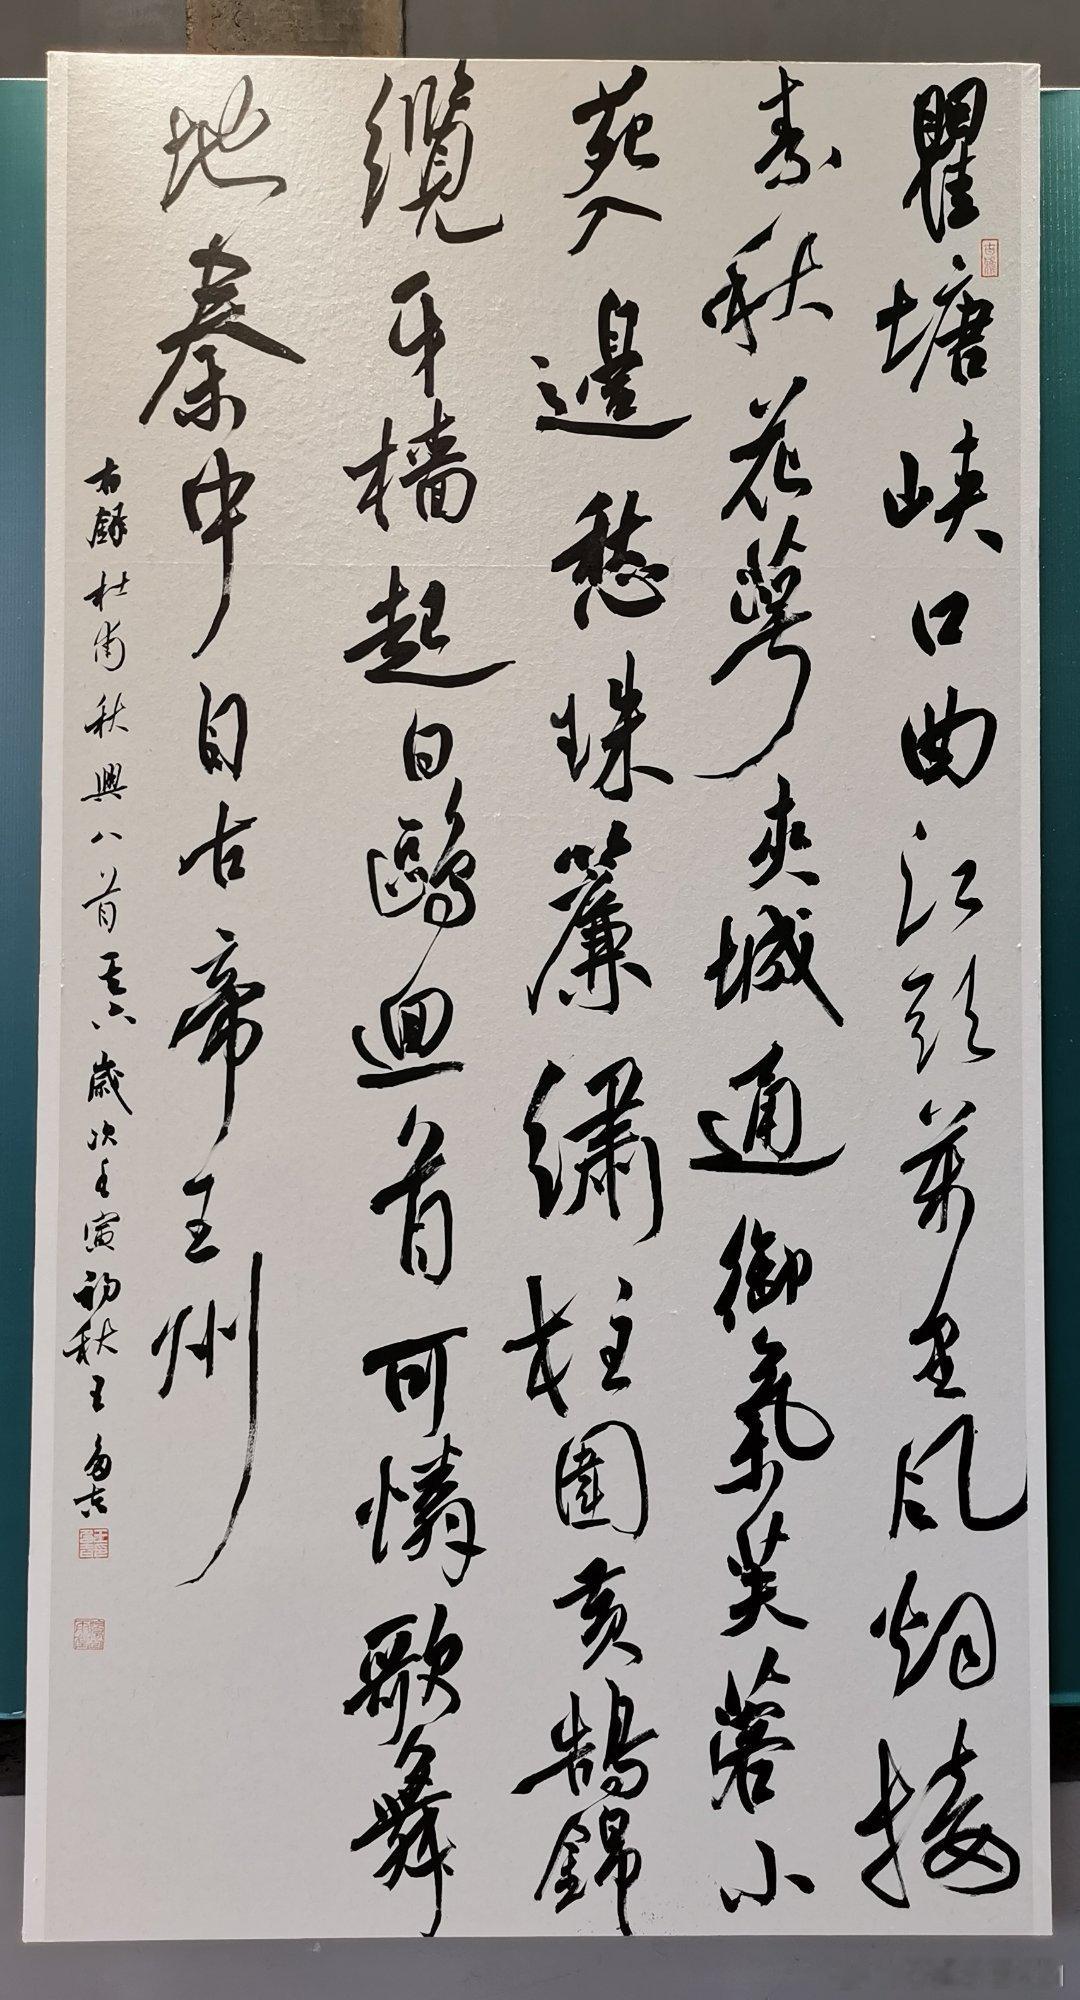 瞿塘峡口曲江头万里风烟接
素秋花萼夹城通御气芙蓉小
苑入邊愁珠簾繡柱圍黄鹄錦
纜牙檣起白鷗迴首可憐歌舞
地秦中自古帝王州
右録杜甫秋興八首其六歲次壬寅初秋王